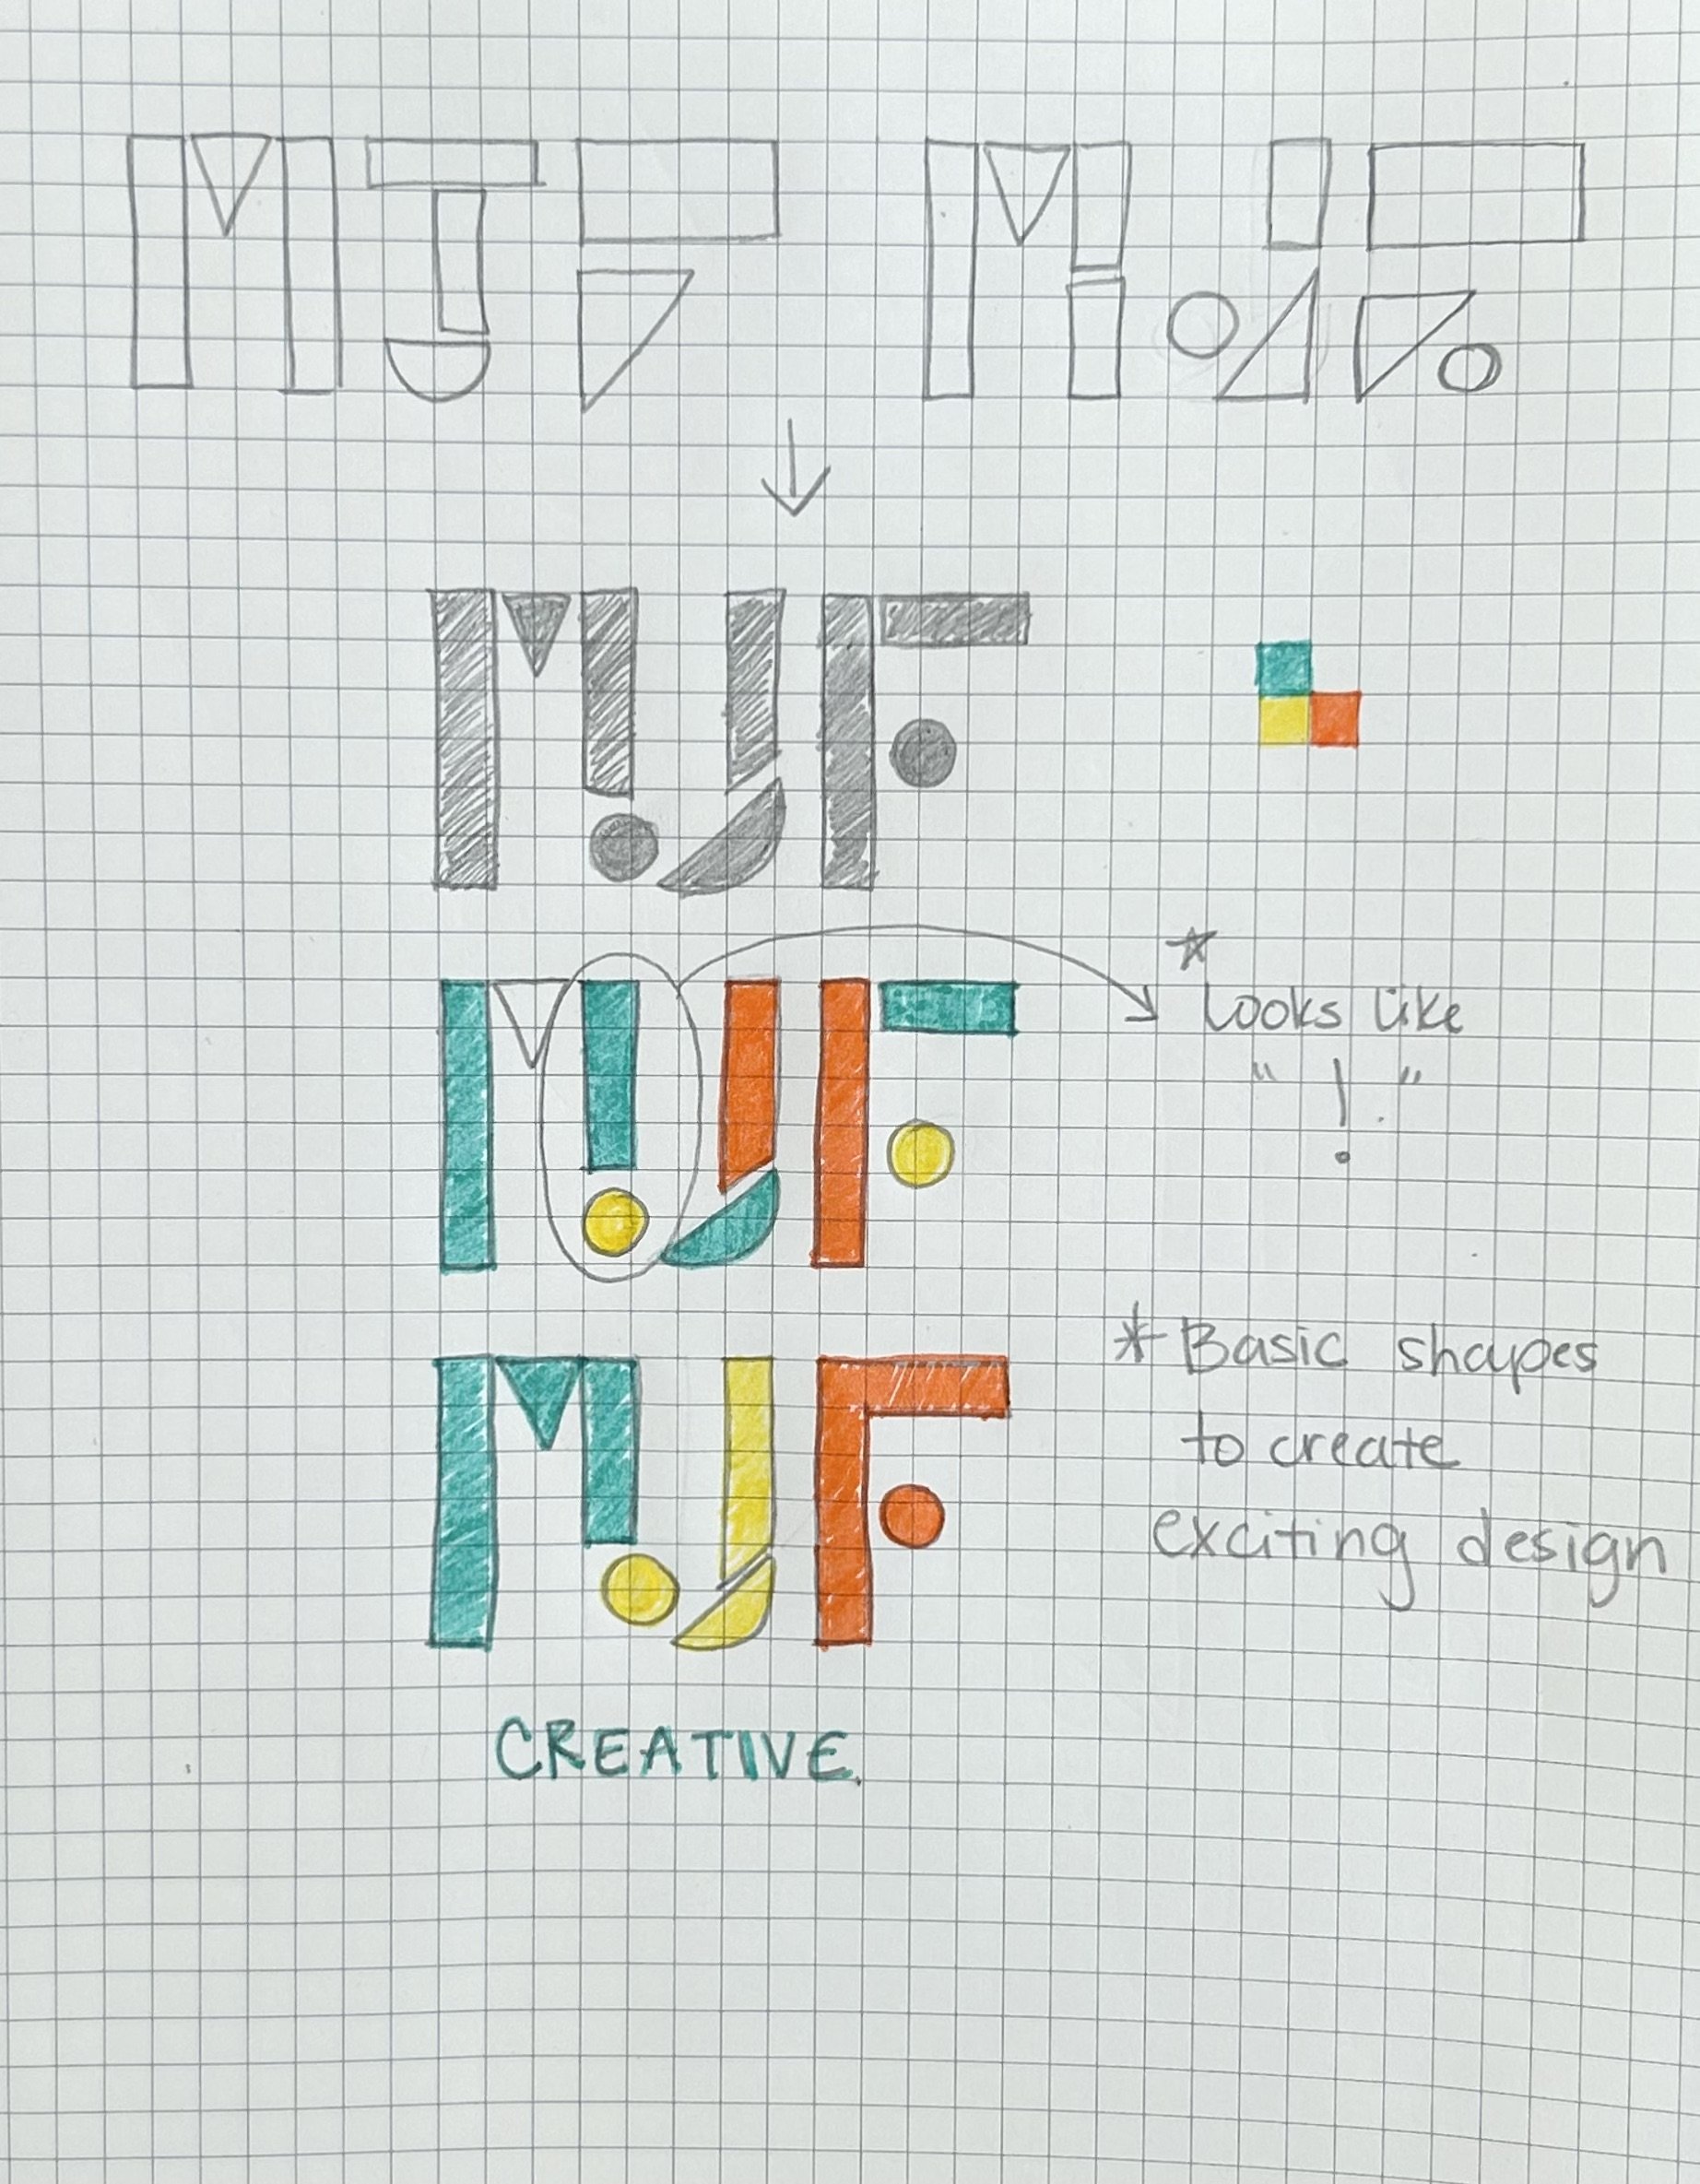 MJF MJF
MJF
MJF
* Looks like
" ! "
MJF
* Basic shapes
to create
exciting design
CREATIVE.